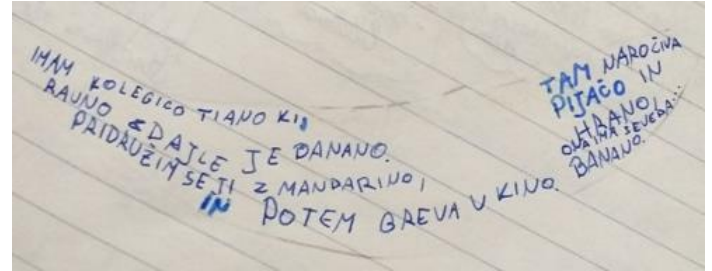 IMAM KOLEGICO TIANO KI,
RAVNO ZDAJLE JE BANANO.
PRIDRUŽIM SE JI Z MANDARINO,
IN POTEM GREVA V KINO.
TAM NAROČIVA
PIJAČO IN
HRANO,
ONA IMA SEVEDA...
BANANO.